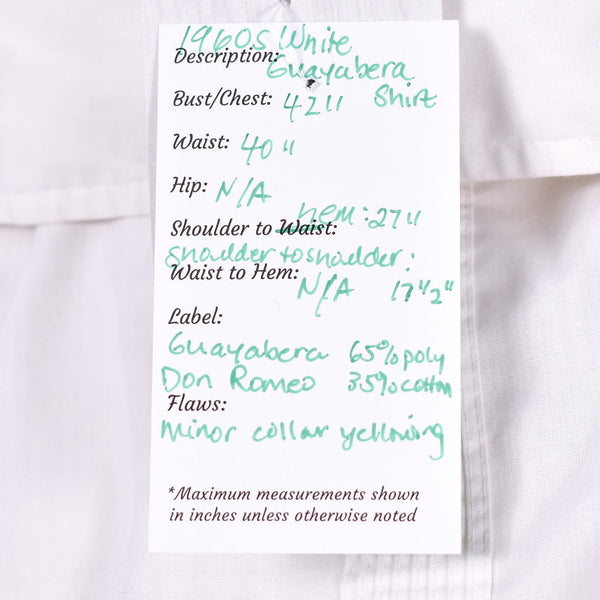 1960s White
Description: Guayabera
Bust/Chest: 42" Shirt
Waist: 40"
Hip: N/A
hem: 27"
Shoulder to Waist:
Shoulder to shoulder:
Waist to Hem: N/A 17 1/2"
Label:
Guayabera 65% poly
Don Romeo 35% cotton
Flaws:
Minor collar yellowing
*Maximum measurements shown
in inches unless otherwise noted